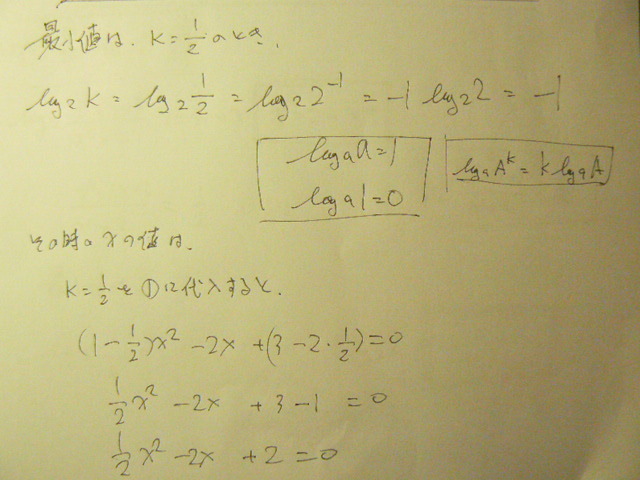 最小値は、K=1/2のとき、
log₂K = log₂ 1/2 = log₂2⁻¹ = -1 log₂2 = -1
logₐa=1
logₐ1=0
logₐAᵏ=klogₐA
その時のxの値は、
K=1/2を①に代入すると、
(1-1/2)x² -2x +(3-2·1/2)=0
1/2x² -2x +3-1 =0
1/2x² -2x +2=0